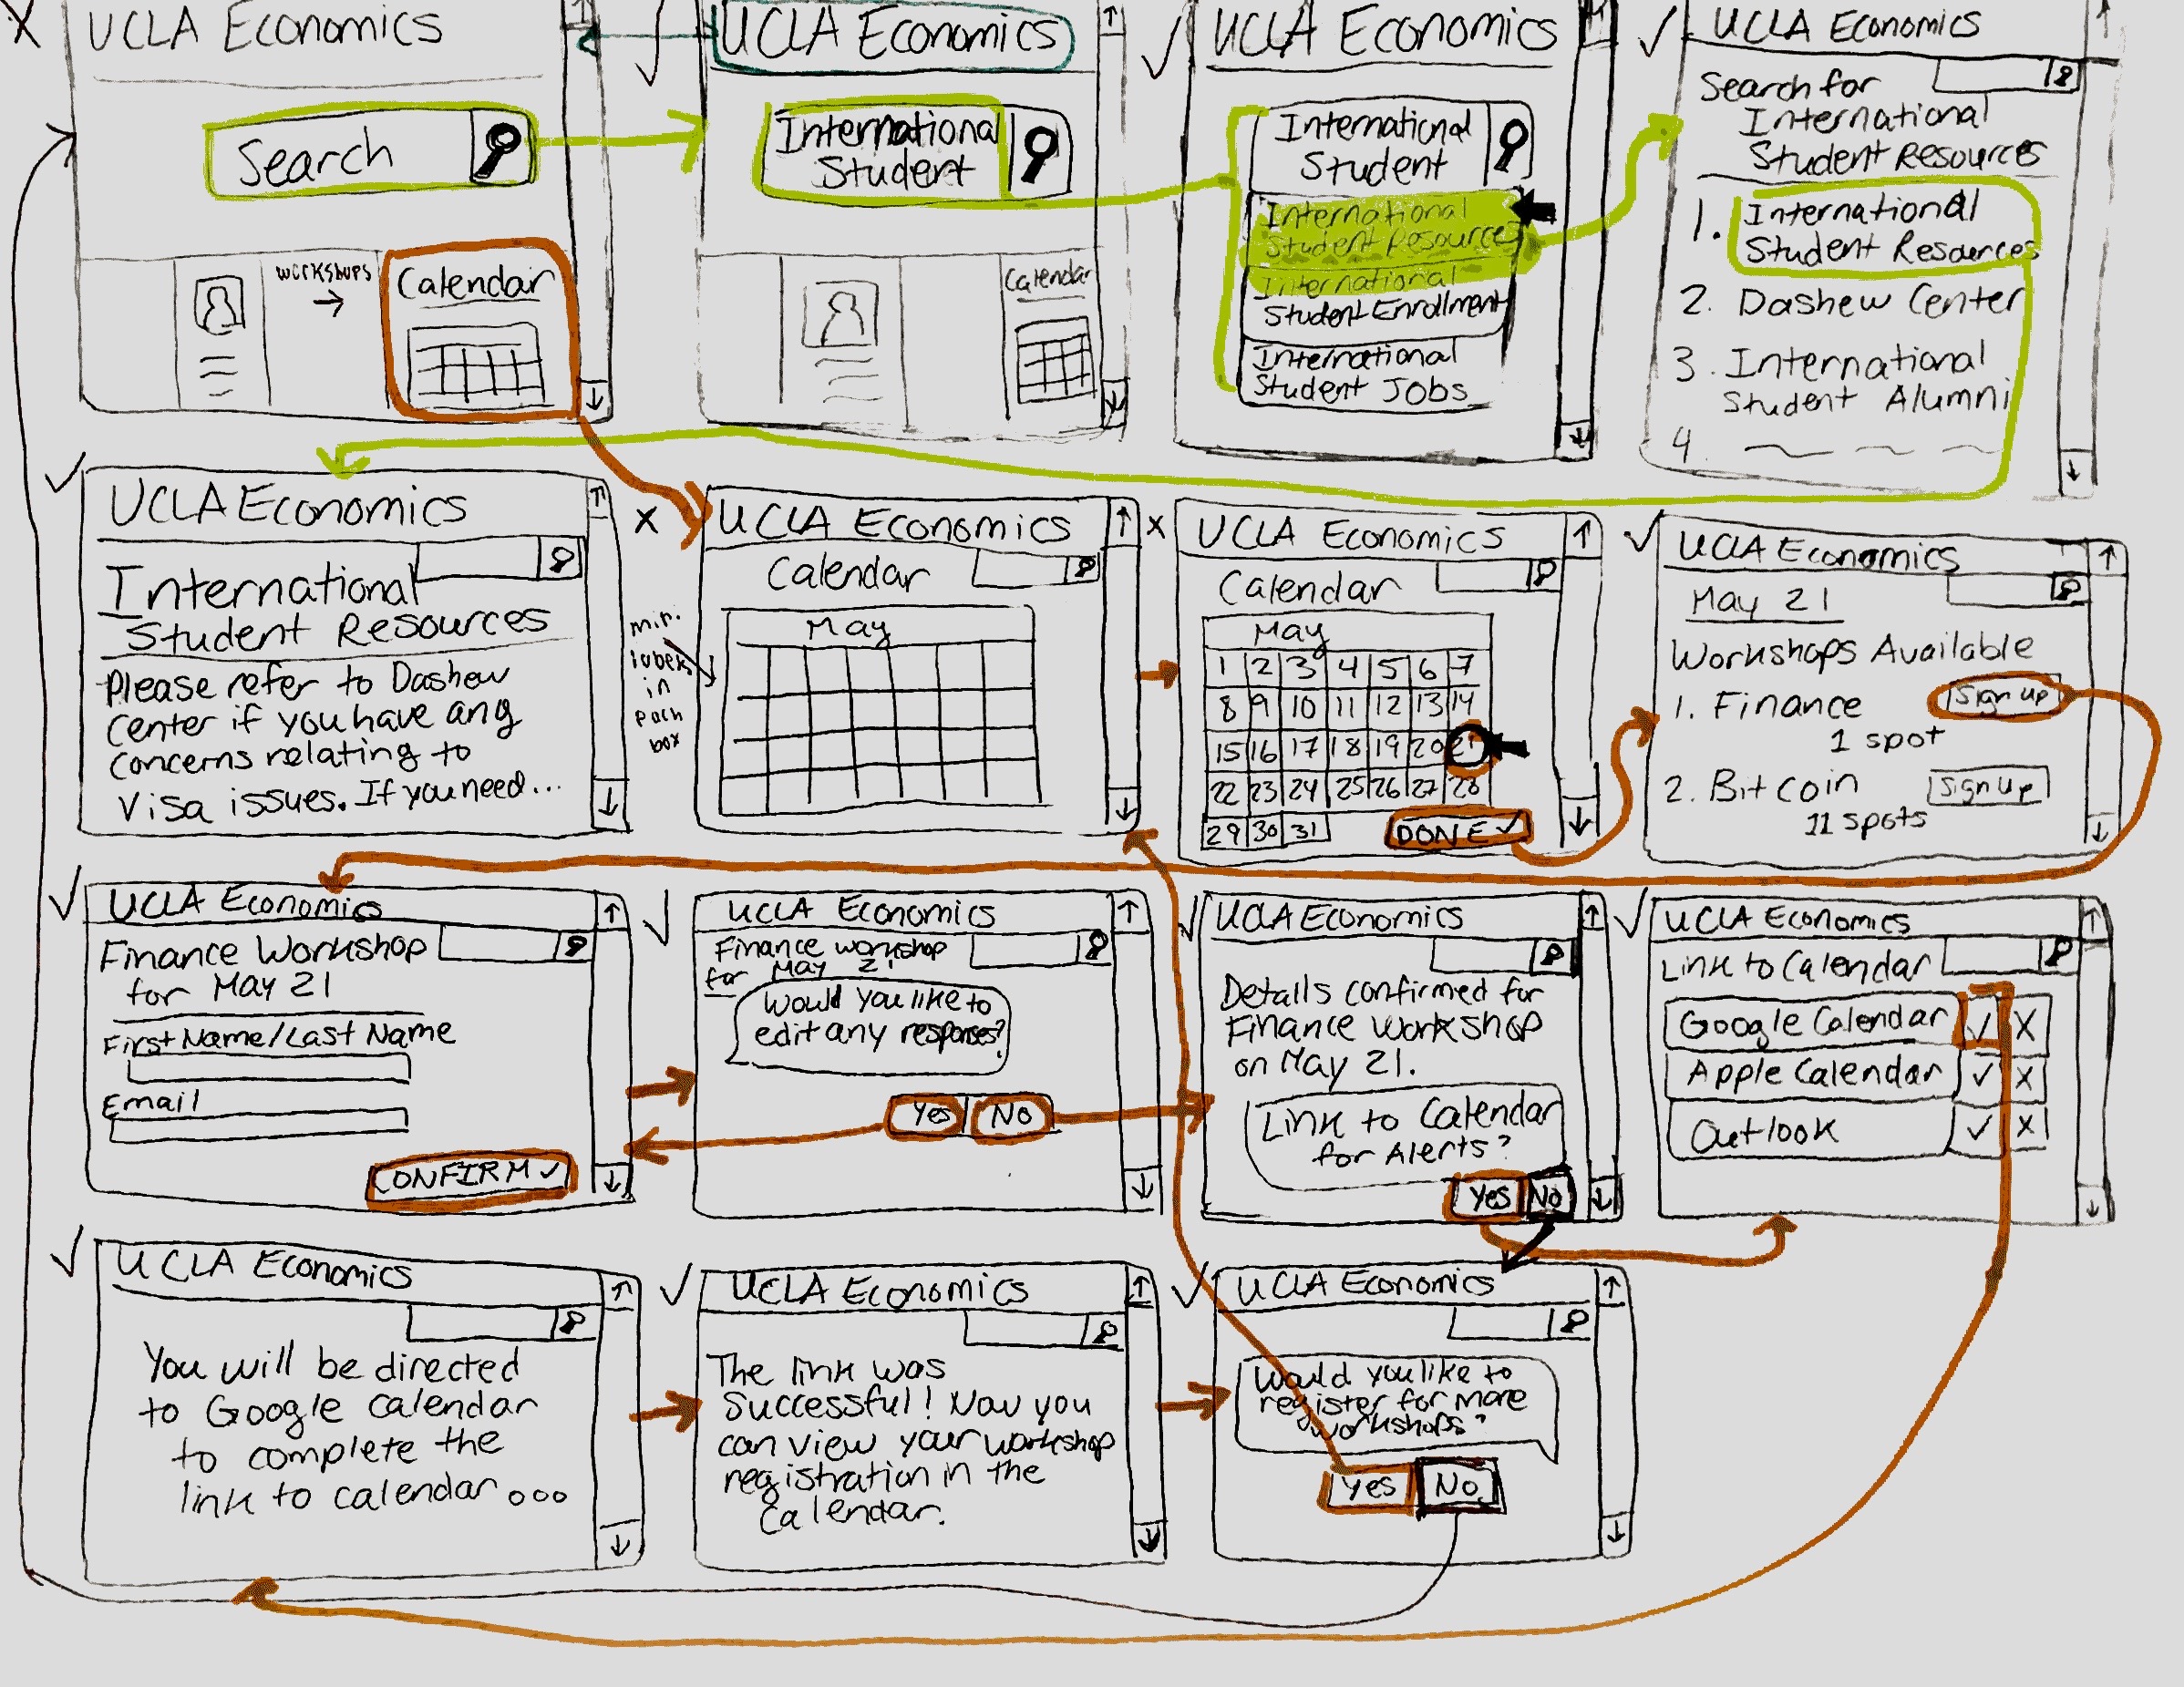 X
UCLA Economics
Search
workshops
Calendar
UCLA Economics
International
Student
Calendar
UCLA Economics
International
Student
International
Student Resources
International
Student Enrollment
International
Student Jobs
UCLA Economics
Search for
International
Student Resources
1. International
Student Resources
2. Dashew Center
3. International
Student Alumni
4.
UCLA Economics
International
Student Resources
Please refer to Dashew
Center if you have any
concerns relating to
Visa issues. If you need...
X
UCLA Economics
Calendar
May
in
box
X
UCLA Economics
Calendar
May
1 2 3 4 5 6 7
8 9 10 11 12 13 14
15 16 17 18 19 20 21
22 23 24 25 26 27 28
29 30 31
DONE ✓
UCLA Economics
May 21
Workshops Available
1. Finance
Sign up
1 spot
2. Bitcoin
Sign up
11 spots
UCLA Economics
Finance Workshop
for May 21
First Name/Last Name
Email
CONFIRM ✓
UCLA Economics
Finance workshop
for May 21
Would you like to
edit any responses?
Yes No
UCLA Economics
Details confirmed for
Finance Workshop
on May 21.
Link to Calendar
for Alerts?
Yes No
UCLA Economics
Link to Calendar
Google Calendar ✓ X
Apple Calendar ✓ X
Outlook ✓ X
UCLA Economics
You will be directed
to Google calendar
to complete the
link to calendar...
UCLA Economics
The link was
Successful! Now you
can view your workshop
registration in the
Calendar.
UCLA Economics
Would you like to
register for more
workshops?
Yes No